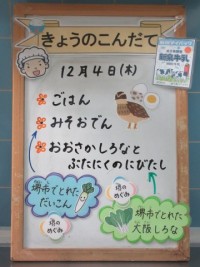 きょうのこんだて
12月4日(木)
ごはん
みそおでん
おおさかしろなと
ぶたにくのにびたし
堺市でとれた
だいこん
堺のめぐみ
堺市でとれた
大阪しろな
堺のめぐみ
牛乳